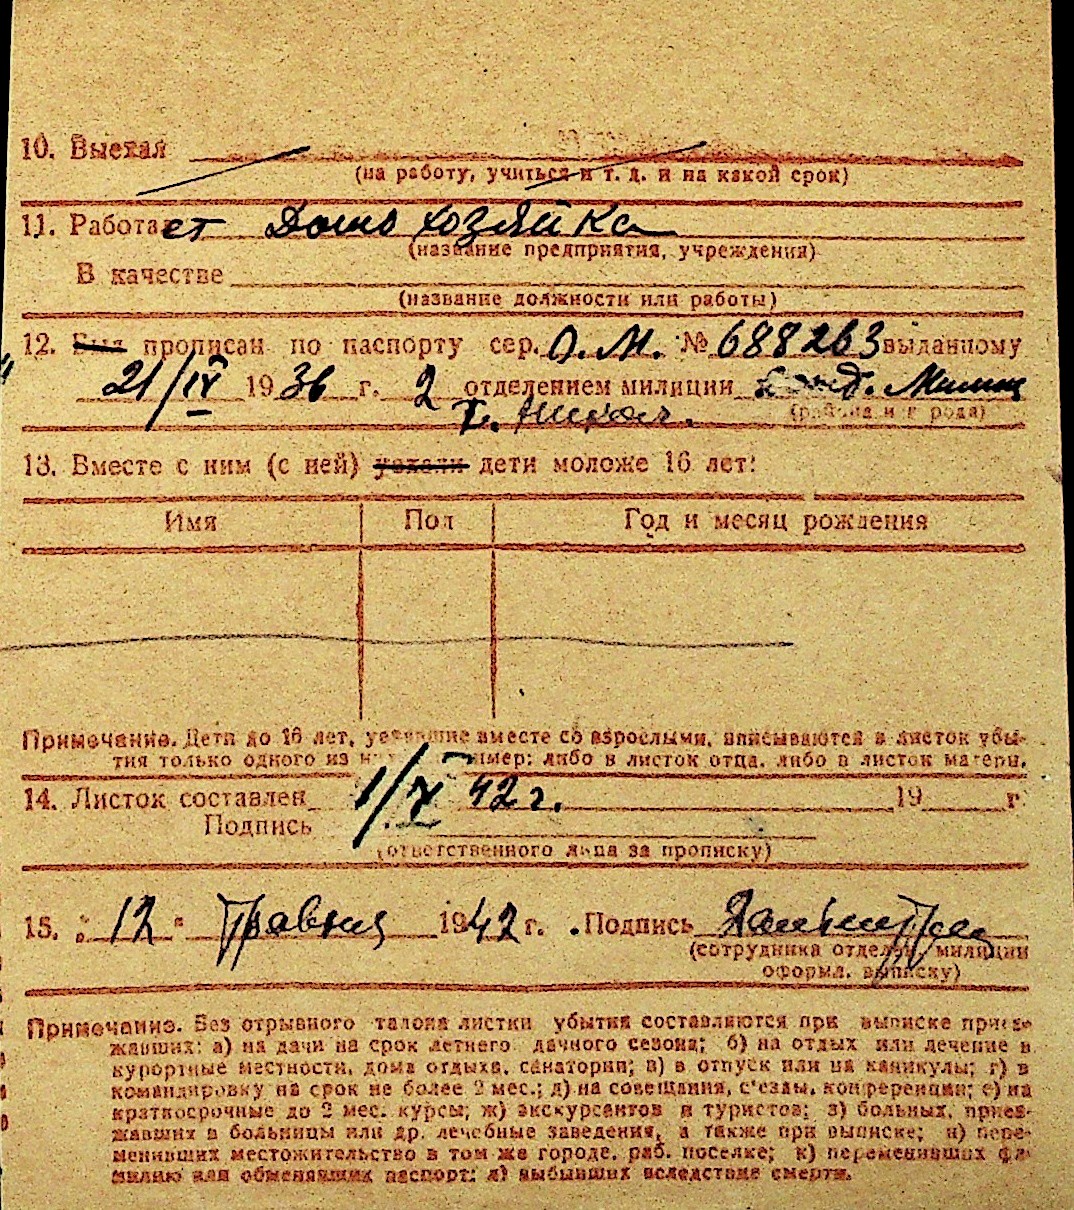 10. Выехал
(на работу, учиться и т. д. и на какой срок)
11. Работает Дом хозяйка
(название предприятия, учреждения)
В качестве
(название должности или работы)
12. Был прописан по паспорту сер. О.М. № 688263 выданному
21/IV 1936 г. 2 отделением милиции
(района и города)
13. Вместе с ним (с ней) уехали дети моложе 16 лет:
Имя Пол Год и месяц рождения
Примечание. Дети до 16 лет, уехавшие вместе со взрослыми, вписываются в листок убы-
тия только одного из них, например: либо в листок отца, либо в листок матери.
14. Листок составлен 1/V 42 г. 19 г.
Подпись
(ответственного лица за прописку)
15. "12" Травня 1942 г. Подпись
(сотрудника отделен. милиции
оформл. выписку)
Примечание. Без отрывного талона листки убытия составляются при выписке приез-
жавших: а) на дачи на срок летнего дачного сезона; б) на отдых или лечение в
курортные местности, дома отдыха, санатории; в) в отпуск или на каникулы; г) в
командировку на срок не более 2 мес.; д) на совещания, с'езды, конференции; е) на
краткосрочные до 2 мес. курсы; ж) экскурсантов и туристов; з) больных, приез-
жавших в больницы или др. лечебные заведения, а также при выписке; и) пере-
менивших местожительство в том же городе, раб. поселке; к) переменивших фа-
милию или обменявших паспорт; л) выбывших вследствие смерти.